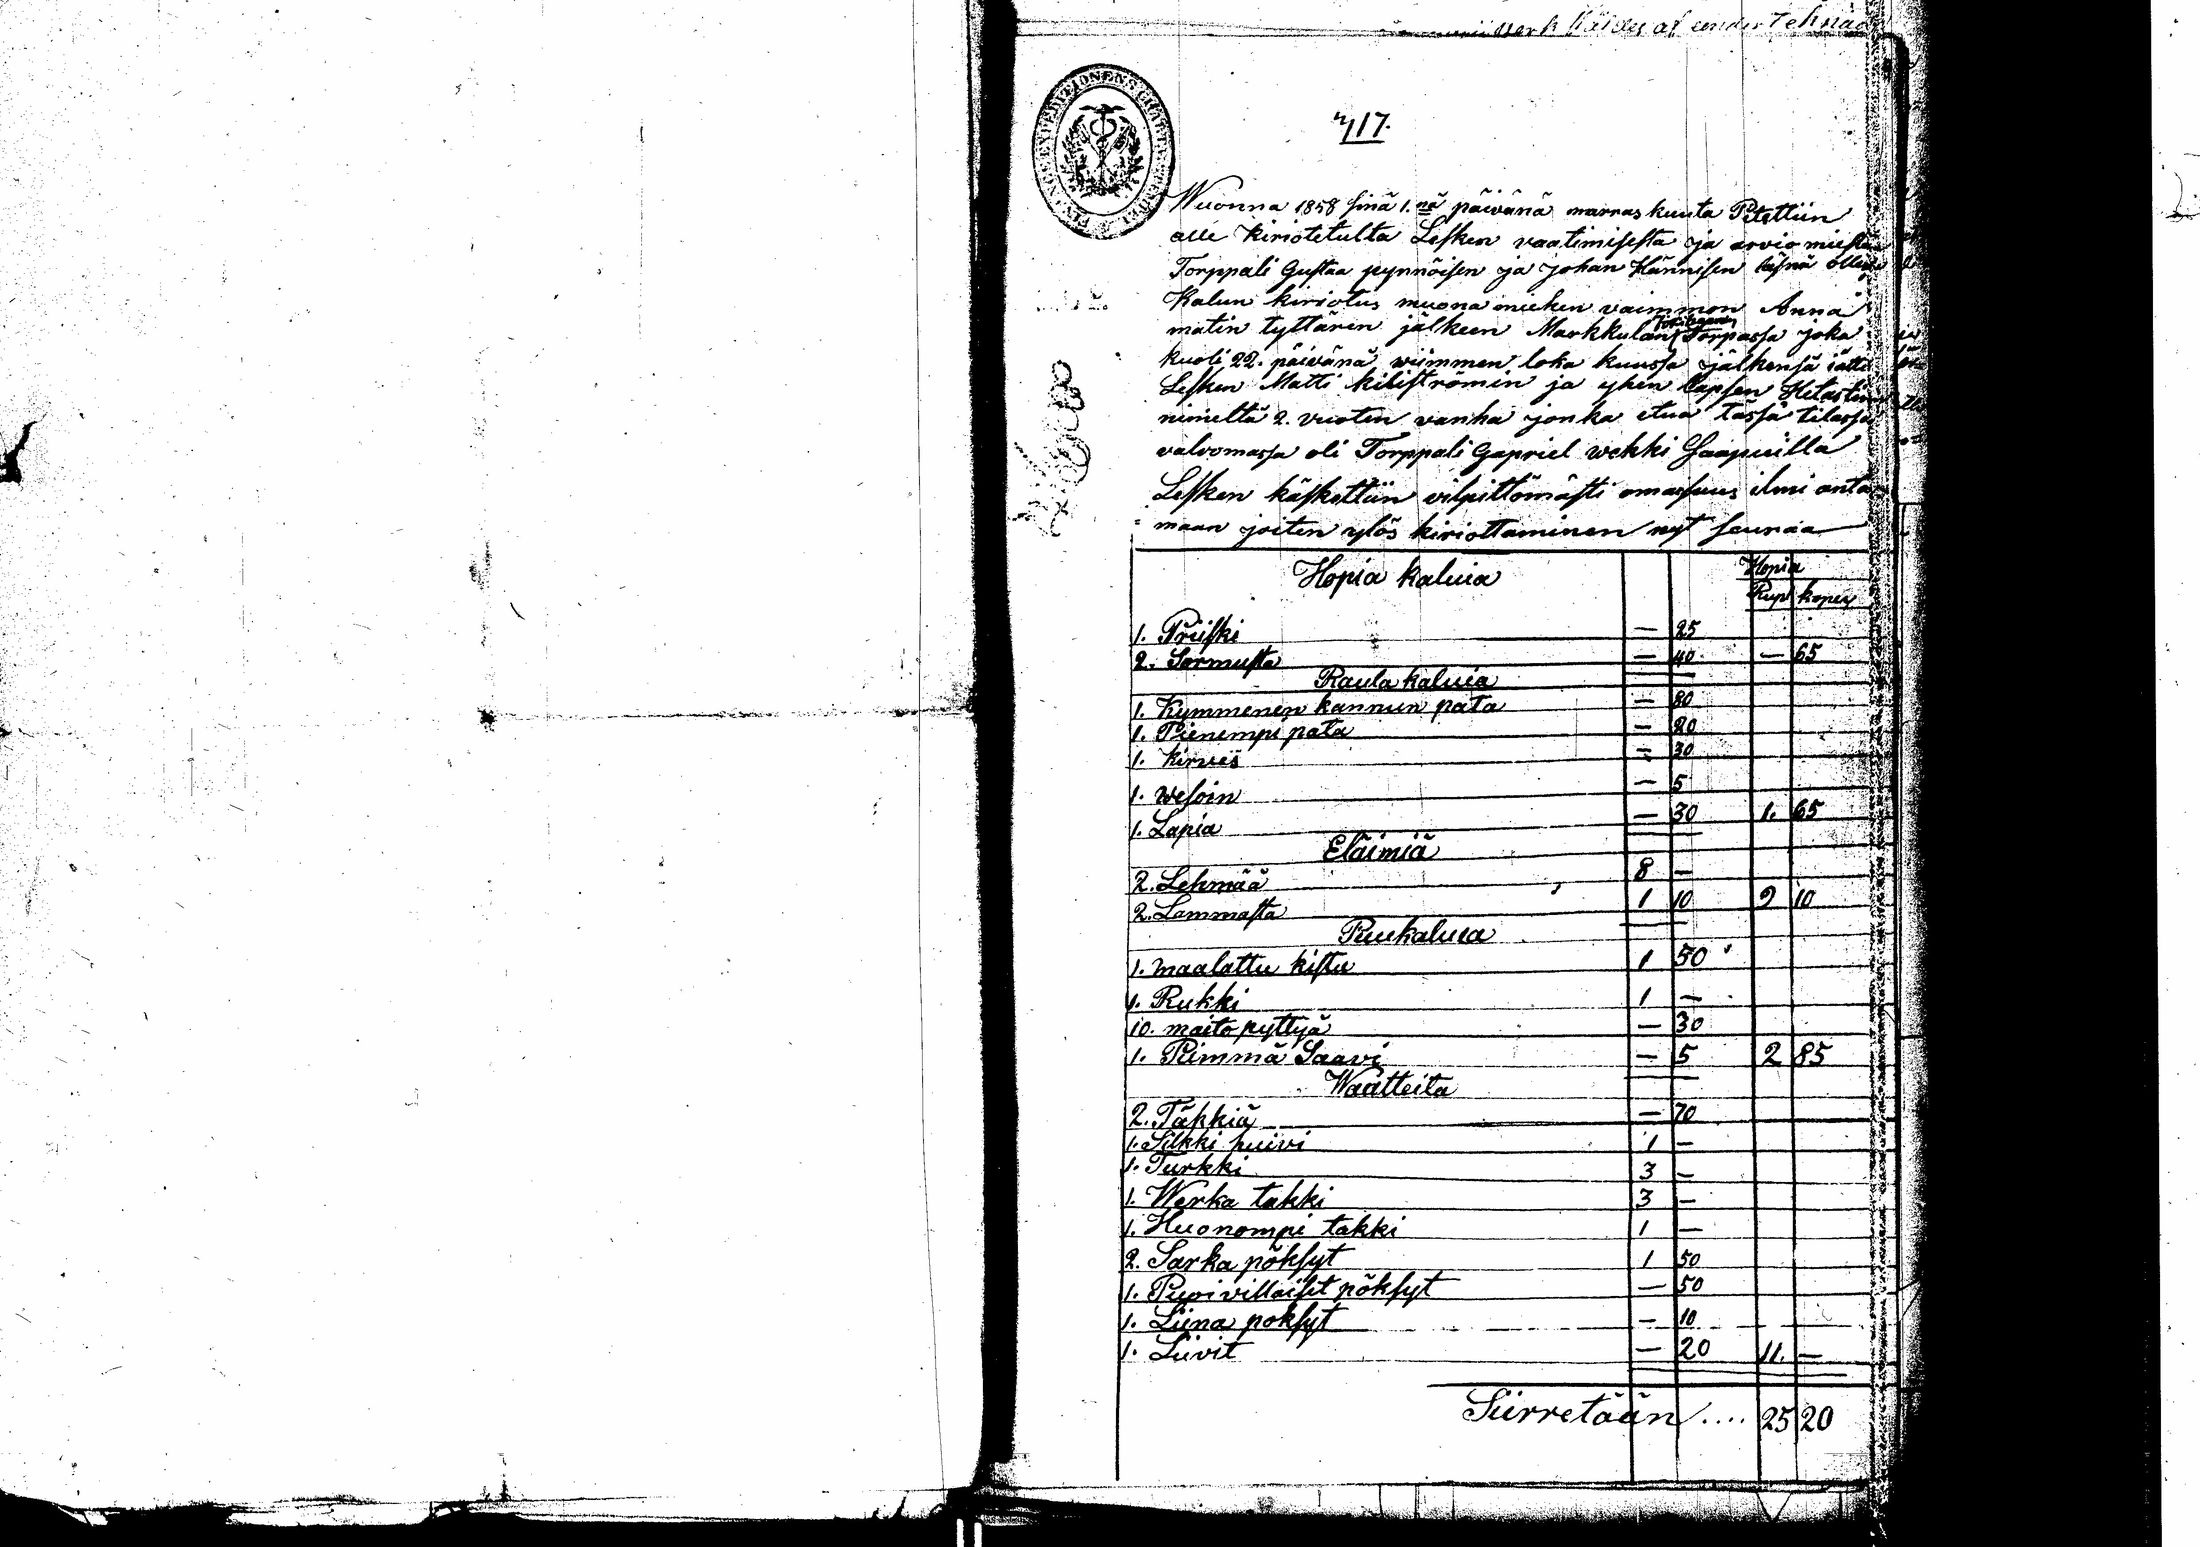 af under
717.
Wuonna 1858 sinä 1.nä päivänä marraskuuta Pitettiin
alle kiriotetulta Lesken vaatimisesta ja arvio miesten
Torppali Gustaa pynnöisen ja Johan Hännisen läsnä ollesa
Kalun kiriotus muona miehen vaimmon Anna
matin tyttären jälkeen Markkulan Torpassa joka
kuoli 22. päivänä viimmen loka kuussa jälkensä jätti
Lesken Matti kiliströmin ja yhen lapsen
nimeltä 2. vuoten vanha jonka etua tässä tilassa
valvomassa oli Torppali Gapriel wekki Haapuilla
Lesken käskettiin vilpittömästi omaisuus ilmi anta
maan joiten ylös kiriottaminen nyt seuraa
Hopia kaluia Hopia
Rup kopek
1. Priiski — 25
2. Sormusta — 40 — 65
Rauta kaluia
1. Kymmenen kannun pata — 80
1. Pienempi pata — 20
1. Kirves — 30
1. wesoin — 5
1. Lapia — 30 1. 65
Eläimiä
2. Lehmää 8 —
2. Lammasta 1 10 9 10
Puukaluia
1. maalattu kistu 1 50
1. Rukki 1 —
10. maito pyttyä — 30
1. Piimmä Saavi — 5 2 85
Waatteita
2. Täkkiä — 70
1. Silkki huivi 1 —
1. Turkki 3 —
1. Werka takki 3 —
1. Huonompi takki 1 —
2. Sarka pöksyt 1 50
1. Pupivillaiset pöksyt — 50
1. Liina poksyt — 10
1. Liivit — 20 11. —
Siirretään .... 25 20